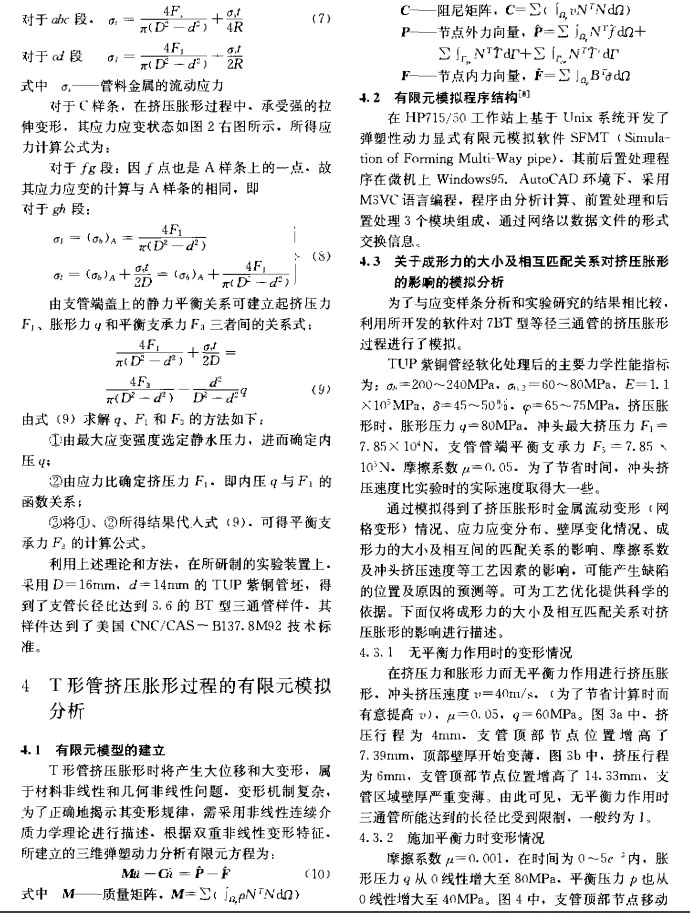 对于abc段, σₜ = 4F₁/π(D²−d²) + σₛt/4R (7)
对于cd段 σₗ = 4F₁/π(D²−d²) + σₛt/2R
式中 σₛ——管料金属的流动应力
对于C样条，在挤压胀形过程中，承受强的拉
伸变形，其应力应变状态如图2右图所示，所得应
力计算公式为：
对于fg段：因f点也是A样条上的一点，故
其应力应变的计算与A样条的相同，即
对于gh段：
σₗ = (σb)A = 4F₁/π(D²−d²)
σₜ = (σb)A + σₛt/2D = (σb)A + 4F₁/π(D²−d²) (8)
由支管端盖上的静力平衡关系可建立起挤压力
F₁、胀形力q和平衡支承力F₃三者间的关系式：
4F₁/π(D²−d²) + σₛt/2D =
4F₃/π(D²−d²) − d²/(D²−d²) q (9)
由式（9）求解q、F₁和F₂的方法如下：
①由最大应变强度选定静水压力，进而确定内
压q；
②由应力比确定挤压力F₁，即内压q与F₁的
函数关系；
③将①、②所得结果代入式（9），可得平衡支
承力F₂的计算公式。
利用上述理论和方法，在所研制的实验装置上，
采用D=16mm，d=14mm的TUP紫铜管坯，得
到了支管长径比达到3.6的BT型三通管样件，其
样件达到了美国CNC/CAS-B137.8M92技术标
准。
4 T形管挤压胀形过程的有限元模拟
分析
4.1 有限元模型的建立
T形管挤压胀形时将产生大位移和大变形，属
于材料非线性和几何非线性问题，变形机制复杂，
为了正确地揭示其变形规律，需采用非线性连续介
质力学理论进行描述，根据双重非线性变形特征，
所建立的三维弹塑动力分析有限元方程为：
Mü − Cu̇ = P̂ − F̂ (10)
式中 M——质量矩阵，M=∑(∫Ωₑ ρNᵀNdΩ)
C——阻尼矩阵，C=∑(∫Ωₑ υNᵀNdΩ)
P——节点外力向量，P̂=∑∫Ωₑ Nᵀf̂dΩ+
∑∫Γ NᵀT̂dΓ+∑∫Γ NᵀT̂dΓ
F——节点内力向量，F̂=∑∫Ωₑ Bᵀσ̂dΩ
4.2 有限元模拟程序结构[8]
在HP715/50工作站上基于Unix系统开发了
弹塑性动力显式有限元模拟软件SFMT（Simula-
tion of Forming Multi-Way pipe），其前后置处理程
序在微机上Windows95，AutoCAD环境下，采用
MSVC语言编程，程序由分析计算、前置处理和后
置处理3个模块组成，通过网络以数据文件的形式
交换信息。
4.3 关于成形力的大小及相互匹配关系对挤压胀形
的影响的模拟分析
为了与应变样条分析和实验研究的结果相比较，
利用所开发的软件对7BT型等径三通管的挤压胀形
过程进行了模拟。
TUP紫铜管经软化处理后的主要力学性能指标
为：σb=200～240MPa，σ0.2=60～80MPa，E=1.1
×10⁵MPa，δ=45～50%，φ=65～75MPa，挤压胀
形时，胀形压力q=80MPa，冲头最大挤压力F₁=
7.85×10⁴N，支管管端平衡支承力F₃=7.85×
10³N，摩擦系数μ=0.05，为了节省时间，冲头挤
压速度比实验时的实际速度取得大一些。
通过模拟得到了挤压胀形时金属流动变形（网
格变形）情况、应力应变分布、壁厚变化情况、成
形力的大小及相互间的匹配关系的影响、摩擦系数
及冲头挤压速度等工艺因素的影响，可能产生缺陷
的位置及原因的预测等。可为工艺优化提供科学的
依据。下面仅将成形力的大小及相互匹配关系对挤
压胀形的影响进行描述。
4.3.1 无平衡力作用时的变形情况
在挤压力和胀形力而无平衡力作用进行挤压胀
形，冲头挤压速度v=40m/s，（为了节省计算时而
有意提高v），μ=0.05，q=60MPa。图3a中，挤
压行程为4mm，支管顶部节点位置增高了
7.39mm，顶部壁厚开始变薄，图3b中，挤压行程
为6mm，支管顶部节点位置增高了14.33mm，支
管区域壁厚严重变薄。由此可见，无平衡力作用时
三通管所能达到的长径比受到限制，一般约为1。
4.3.2 施加平衡力时变形情况
摩擦系数μ=0.001，在时间为0～5e⁻³内，胀
形压力q从0线性增大至80MPa，平衡压力p也从
0线性增大至40MPa。图4中，支管顶部节点移动